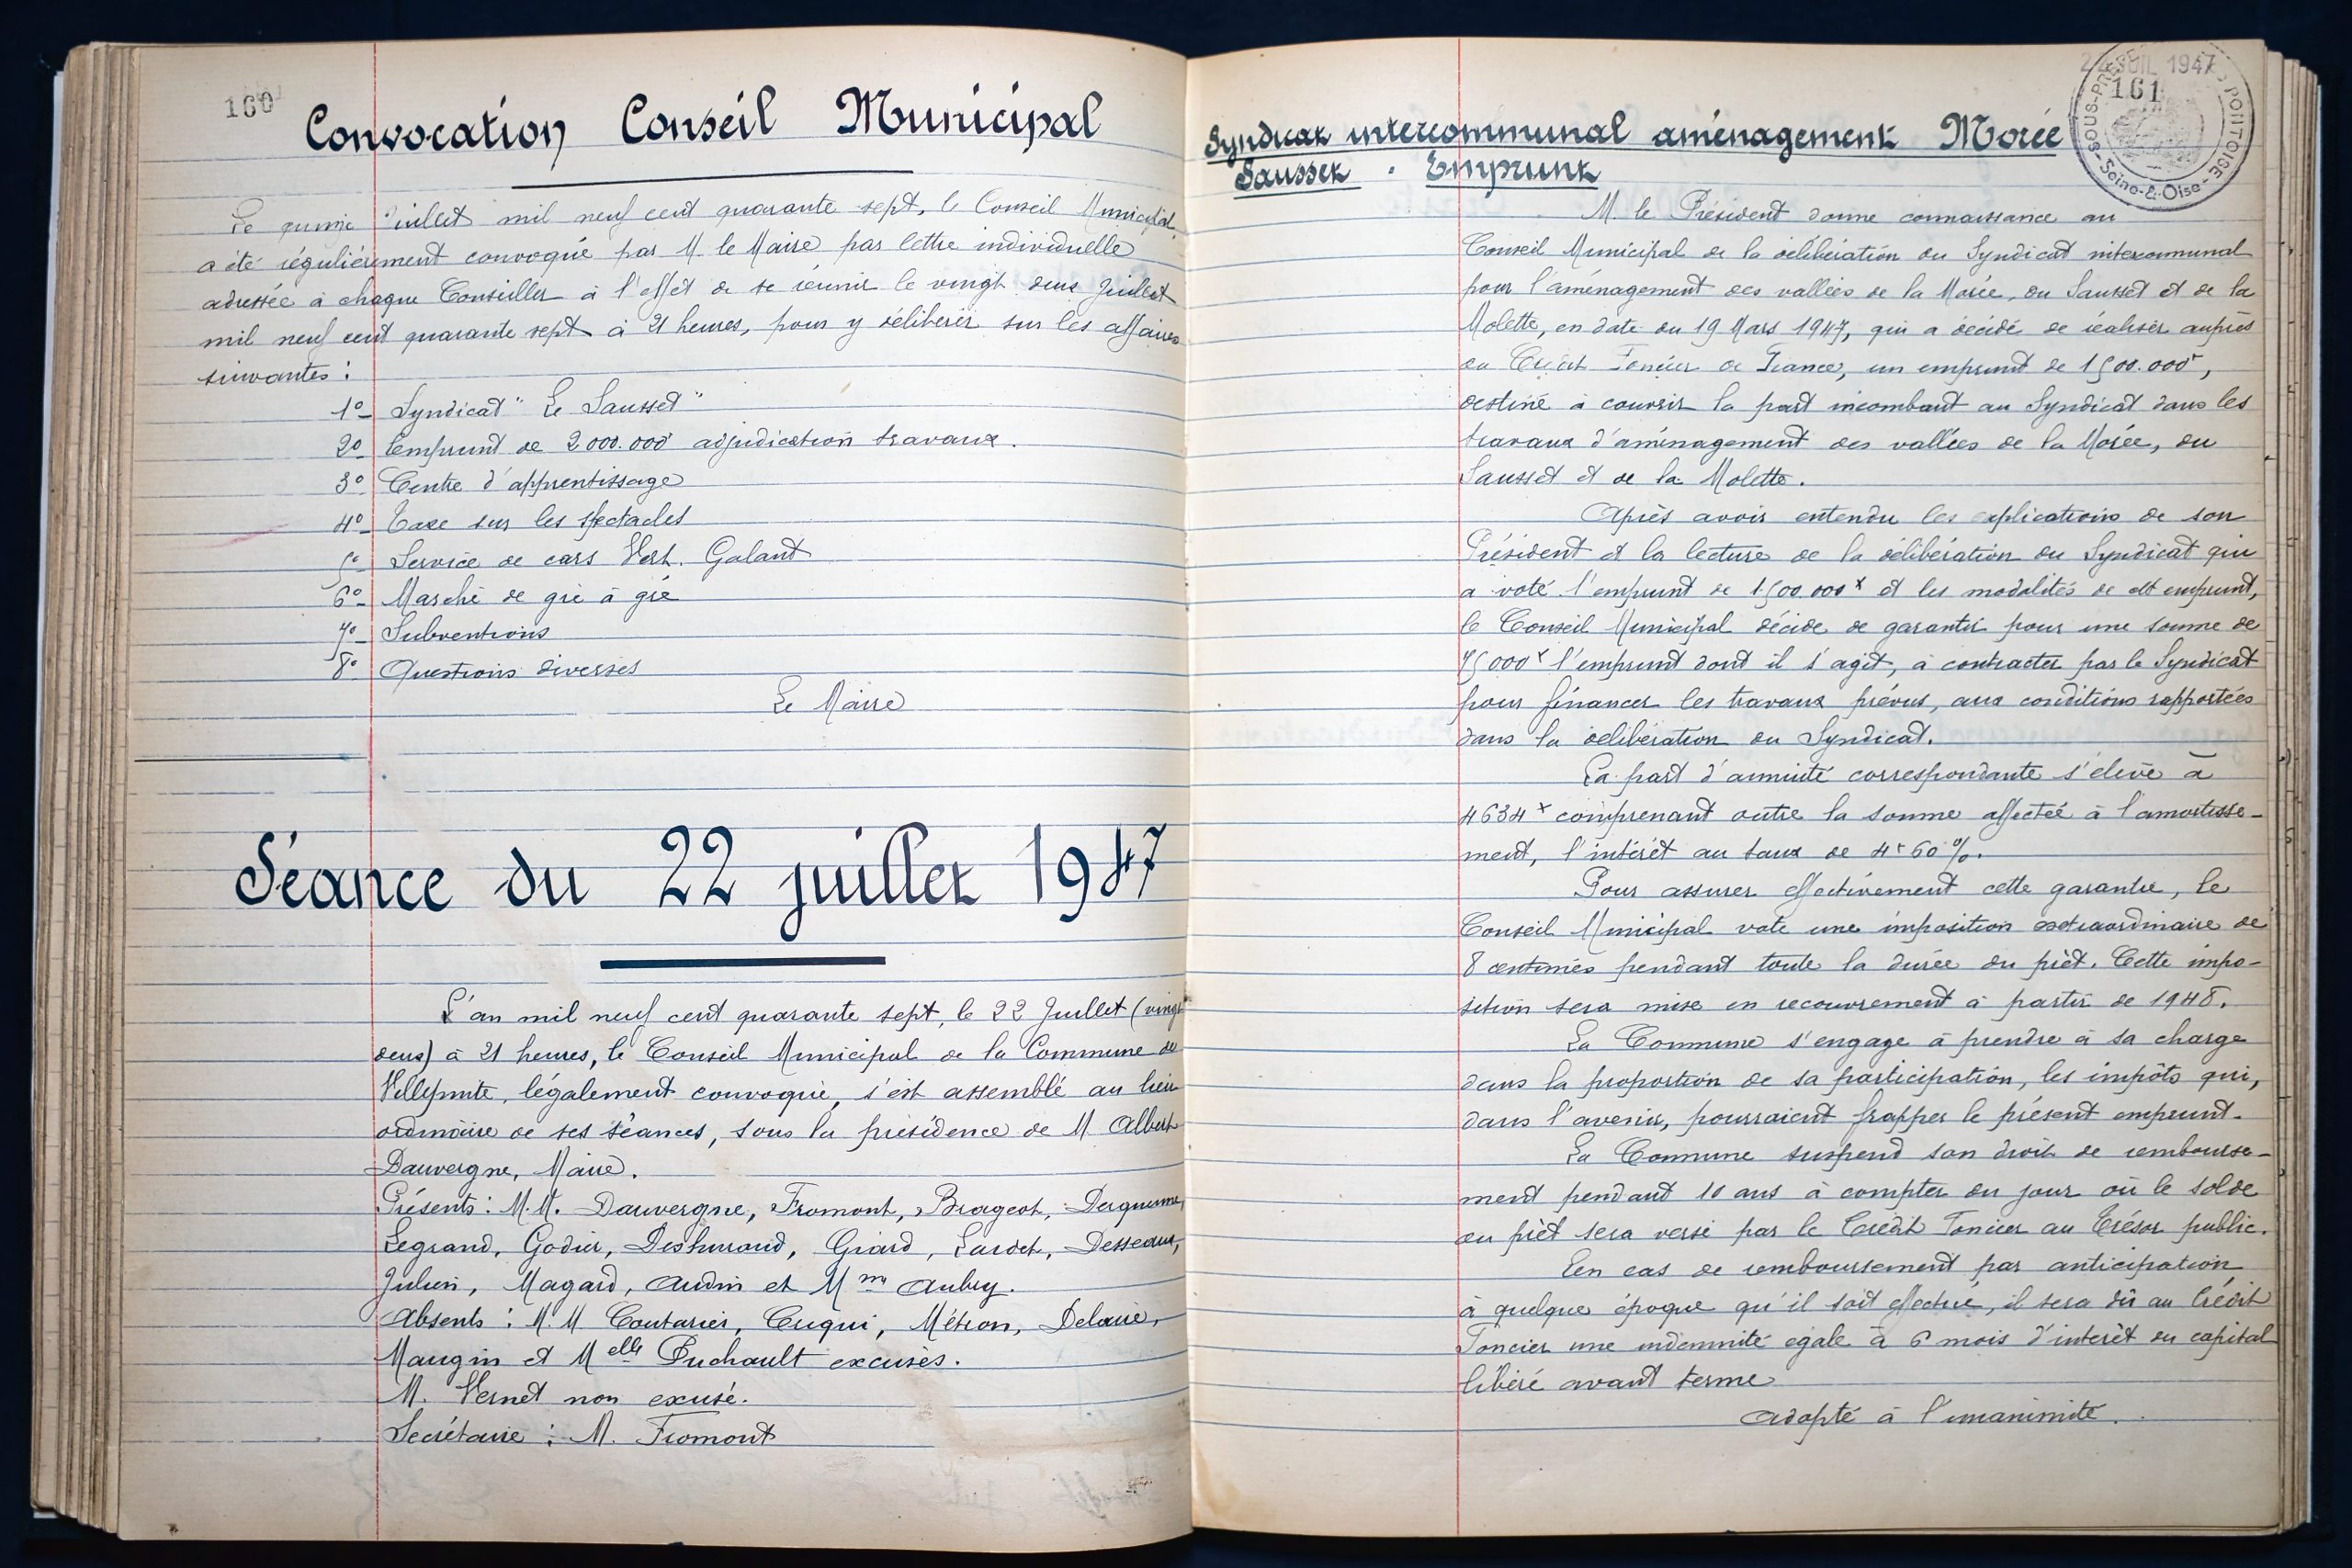 160
Convocation Conseil Municipal
Le quinze Juillet mil neuf cent quarante sept, le Conseil Municipal
a été régulièrement convoqué par M. le Maire par lettre individuelle
adressée à chaque Conseiller à l'effet de se réunir le vingt deux Juillet
mil neuf cent quarante sept à 21 heures, pour y délibérer sur les affaires
suivantes :
1º- Syndicat "Le Sausset"
2º- Emprunt de 2 000.000f adjudication travaux.
3º- Centre d'apprentissage
4º- Taxe sur les spectacles
5º- Service de cars Vert. Galant
6º- Marché de gré à gré
7º- Subventions
8º- Questions diverses
Le Maire
Séance du 22 juillet 1947
L'an mil neuf cent quarante sept, le 22 Juillet (vingt
deux) à 21 heures, le Conseil Municipal de la Commune de
Villepinte, légalement convoqué, s'est assemblé au lieu
ordinaire de ses séances, sous la présidence de M Albert
Dauvergne, Maire.
Présents : M.M. Dauvergne, Fromont, Brageot,
Legrand, Godier, Giard, Lardet, Desseaux,
Julien, Magard, Audin et Mme Aubry.
Absents : M.M Coutarier, Cuqui, Métion, Delaire,
Maugin et Melle Puchault excusés.
M. Vernet non excusé.
Secrétaire : M. Fromont
22 JUIL 1947
161
SOUS-PRÉ PONTOISE
Seine-&-Oise
Syndicat intercommunal aménagement Morée
Sausset. Emprunt
M. le Président donne connaissance au
Conseil Municipal de la délibération du Syndicat intercommunal
pour l'aménagement des vallées de la Morée, du Sausset et de la
Molette, en date du 19 Mars 1947, qui a décidé de réaliser auprès
du Crédit Foncier de France, un emprunt de 1 500.000f,
destiné à couvrir la part incombant au Syndicat dans les
travaux d'aménagement des vallées de la Morée, du
Sausset et de la Molette.
Après avoir entendu les explications de son
Président et la lecture de la délibération du Syndicat qui
a voté l'emprunt de 1.500.000f et les modalités de cet emprunt,
le Conseil Municipal décide de garantir pour une somme de
75 000f l'emprunt dont il s'agit, à contracter par le Syndicat
pour financer les travaux prévus, aux conditions rapportées
dans la délibération du Syndicat.
La part d'annuité correspondante s'élève à
4634f comprenant outre la somme affectée à l'amortisse-
ment, l'intérêt au taux de 4f60%.
Pour assurer effectivement cette garantie, le
Conseil Municipal vote une imposition extraordinaire de
8 centimes pendant toute la durée du prêt. Cette impo-
sition sera mise en recouvrement à partir de 1948.
La Commune s'engage à prendre à sa charge
dans la proportion de sa participation, les impôts qui,
dans l'avenir, pourraient frapper le présent emprunt.
La Commune suspend son droit de rembourse-
ment pendant 10 ans à compter du jour où le solde
du prêt sera versé par le Crédit Foncier au Trésor public.
En cas de remboursement par anticipation
à quelque époque qu'il soit effectué, il sera dû au Crédit
Foncier une indemnité égale à 6 mois d'intérêt du capital
libéré avant terme
Adopté à l'unanimité.